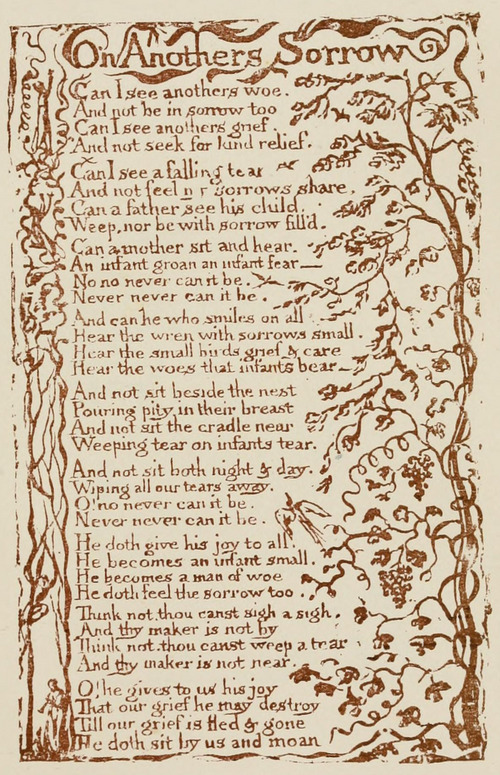 On Anothers Sorrow
Can I see anothers woe.
And not be in sorrow too
Can I see anothers grief
And not seek for kind relief.
Can I see a falling tear
And not feel my sorrows share.
Can a father see his child.
Weep, nor be with sorrow fill'd.
Can a mother sit and hear.
An infant groan an infant fear—
No no never can it be.
Never never can it be.
And can he who smiles on all
Hear the wren with sorrows small.
Hear the small birds grief & care
Hear the woes that infants bear—
And not sit beside the nest
Pouring pity in their breast
And not sit the cradle near
Weeping tear on infants tear.
And not sit both night & day.
Wiping all our tears away.
O! no never can it be.
Never never can it be.
He doth give his joy to all.
He becomes an infant small.
He becomes a man of woe
He doth feel the sorrow too.
Think not, thou canst sigh a sigh,
And thy maker is not by
Think not, thou canst weep a tear
And thy maker is not near.
O! he gives to us his joy
That our grief he may destroy
Till our grief is fled & gone
He doth sit by us and moan